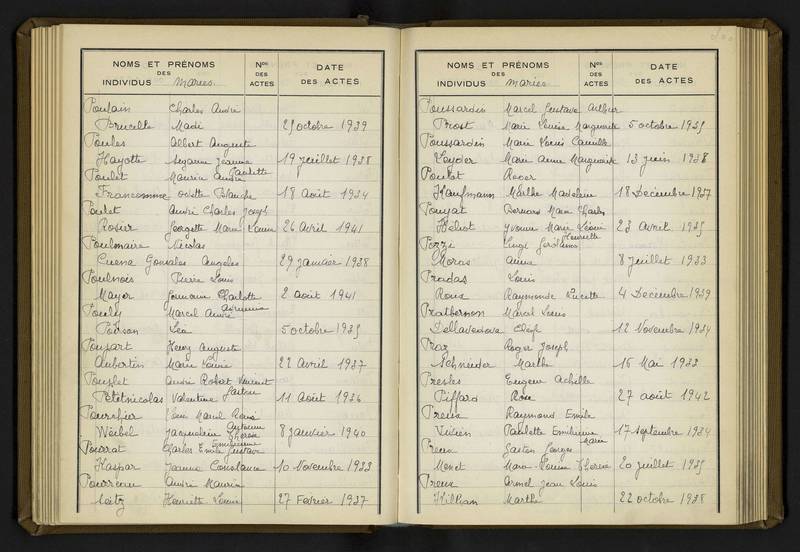 NOMS ET PRÉNOMS DES INDIVIDUS mariés
Nos DES ACTES
DATE DES ACTES
Poulain Charles André
Brucelle Madi 25 octobre 1939
Poules Albert Auguste
Hayotte Suzanne Jeanne 19 juillet 1938
Poulet Maurice André
Francomme Odette Blanche Paulette 18 août 1934
Poulet André Charles Joseph
Rosier Georgette Marie Louise 26 avril 1941
Poulmaire Nicolas
Cuena Gonsales Angeles 29 janvier 1938
Poulnois Pierre Louis
Mayer Germaine Charlotte 2 août 1941
Pouly Marcel André
Poirson Léa 5 octobre 1935
Poupart Henry Auguste
Aubertin Marie Louise 22 avril 1937
Pouplet André Robert Vincent
Petitnicolas Valentine 11 août 1936
Pourchier Marcel René
Weibel Jacqueline Thérèse 8 janvier 1940
Pourrat Charles Emile Gustave
Kaspar Jeanne Constance 10 novembre 1933
Pourreau André Maurice
Seitz Henriette Louise 27 février 1937
NOMS ET PRÉNOMS DES INDIVIDUS mariés
Nos DES ACTES
DATE DES ACTES
Poussardin Marcel Gustave Arthur
Prost Marie Louise Marguerite 5 octobre 1935
Poussardin Marie Louis Camille
Leyder Marie Anne Marguerite 13 juin 1938
Poutot Roger
Kaufmann Marthe Madeleine 18 décembre 1937
Pouyat Bernard Marie Charles
Héliot Yvonne Marie Léonie Henriette 23 avril 1935
Pozzi Luigi
Moras Anna 8 juillet 1933
Pradas Louis
Roux Raymonde Lucette 4 décembre 1939
Prathernon Marcel Louis
Dellavedova 12 novembre 1934
Praz Roger Joseph
Schneider Marthe 16 mai 1932
Presles Eugène Achille
Piffard Rose 27 août 1942
Preux Raymond Emile
Vivien Paulette Emilienne Marie 17 septembre 1934
Preux Gaston Georges
Monet Marie Louise Thérèse 20 juillet 1935
Preux Armel Jean Louis
Killian Marthe 22 octobre 1938